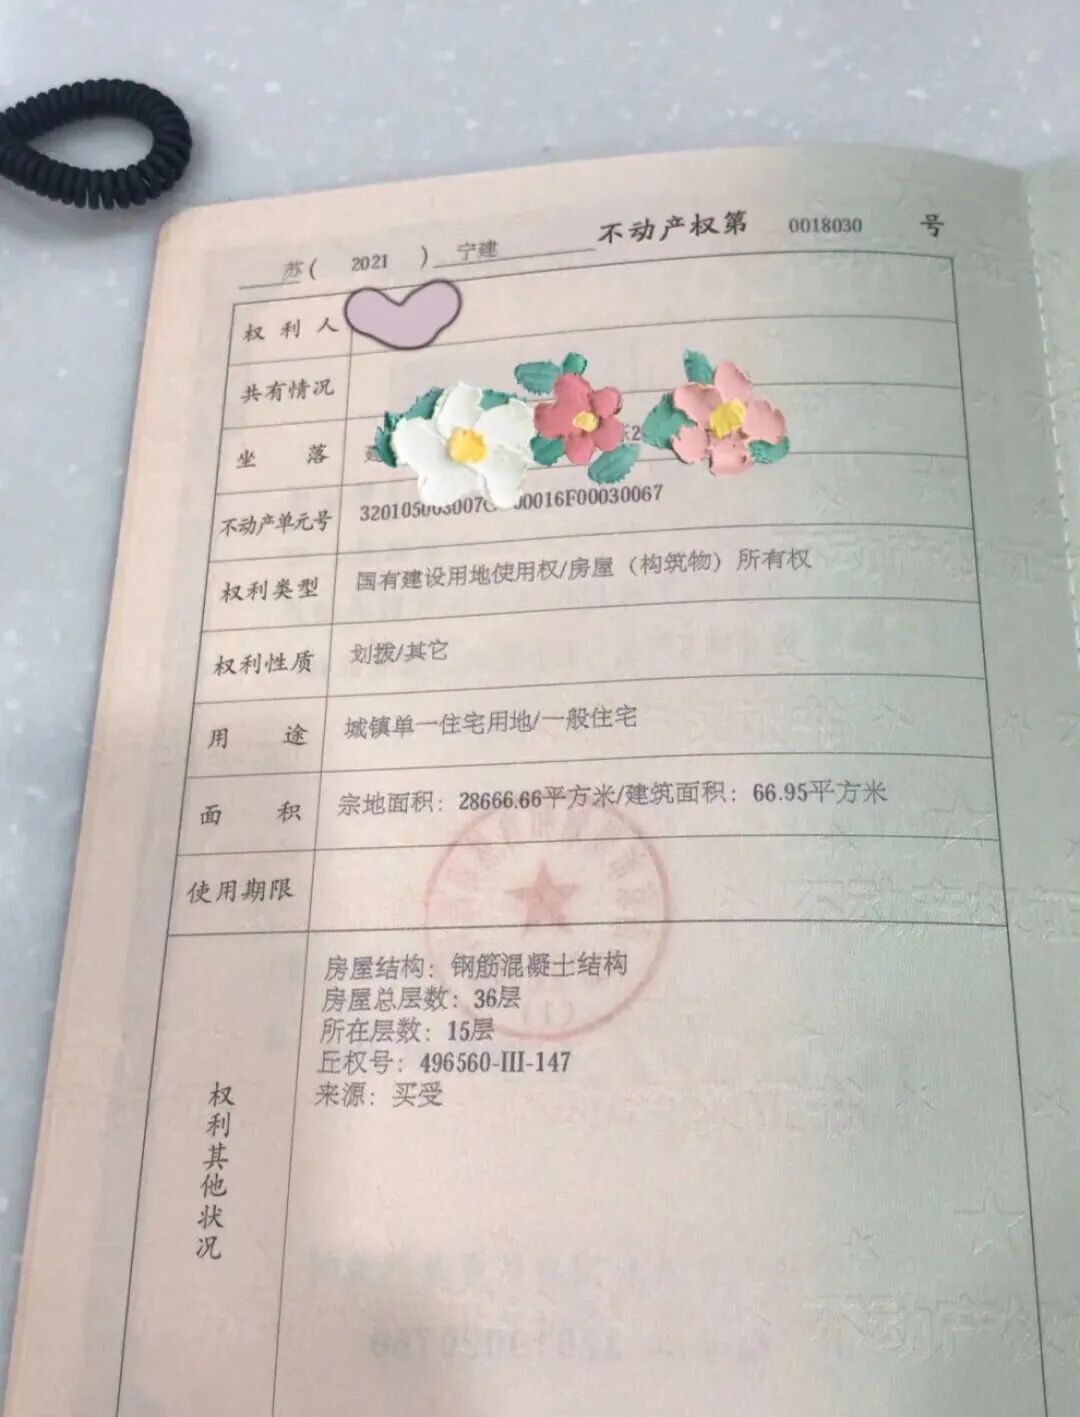 苏( 2021 ) 宁建 不动产权第 0018030 号
权利人
共有情况
坐落
不动产单元号 320105003007G 00016F00030067
权利类型 国有建设用地使用权/房屋（构筑物）所有权
权利性质 划拨/其它
用途 城镇单一住宅用地/一般住宅
面积 宗地面积：28666.66平方米/建筑面积：66.95平方米
使用期限
权利其他状况
房屋结构：钢筋混凝土结构
房屋总层数：36层
所在层数：15层
丘权号：496560-III-147
来源：买受